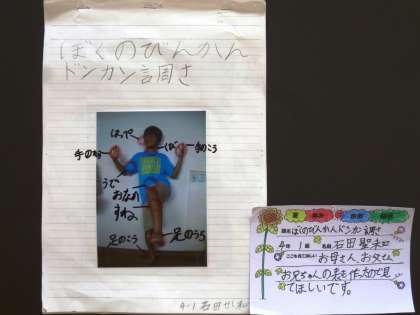 ぼくのびんかん
ドンカン調さ
ほっぺ
ゆび
手のこう
うで
おなか
すね
足のこう
足のうら
4-1
題名 ぼくのびんかんドンカン調さ
4年 1組 名前 石田
お母さん、お父さん
お兄ちゃんの表を作ったので見
てほしいです。